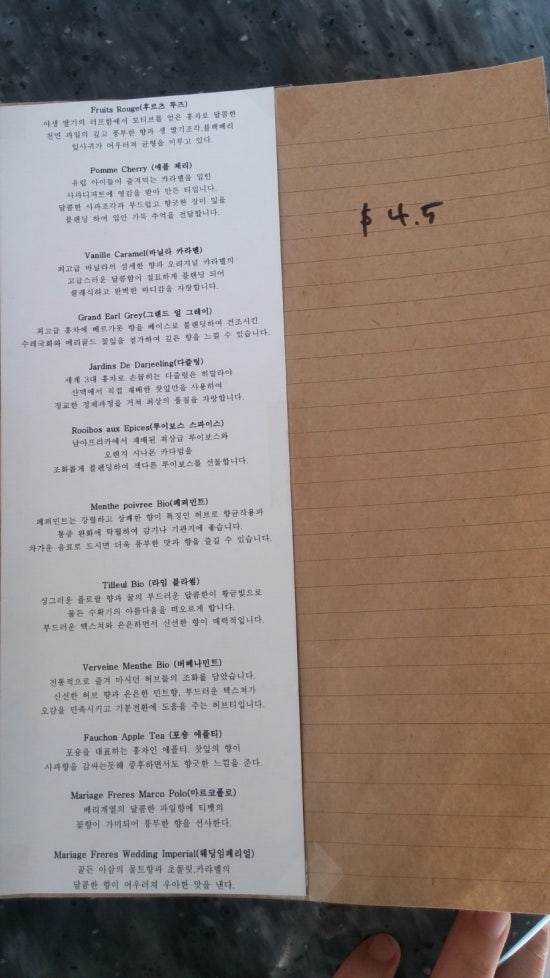 Fruits Rouge(후르츠 루즈)
야생 딸기의 러프함에서 모티브를 얻은 홍차로 달콤한
천연 과일의 깊고 풍부한 향과 생 딸기조각,블랙베리
잎사귀가 어우러져 균형을 이루고 있다.
Pomme Cherry (애플 체리)
유럽 아이들이 즐겨먹는 카라멜을 입힌
사과디저트에 영감을 받아 만든 티입니다.
달콤한 사과조각과 부드럽고 향긋한 장미 잎을
블랜딩 하여 입안 가득 추억을 전달합니다.
Vanille Caramel(바닐라 카라멜)
최고급 바닐라의 섬세한 향과 오리지널 카라멜의
고급스러운 달콤함이 절묘하게 블랜딩 되어
클래식하고 완벽한 바디감을 자랑합니다.
Grand Earl Grey(그랜드 얼 그레이)
최고급 홍차에 베르가못 향을 베이스로 블랜딩하여 건조시킨
수레국화와 메리골드 꽃잎을 첨가하여 깊은 향을 느낄 수 있습니다.
Jardins De Darjeeling(다즐링)
세계 3대 홍차로 손꼽히는 다즐링은 히말라야
산맥에서 직접 재배한 찻잎만을 사용하여
정교한 정제과정을 거쳐 최상의 품질을 자랑합니다.
Rooibos aux Epices(루이보스 스파이스)
남아프리카에서 재배된 최상급 루이보스와
오렌지 시나몬 카다멈을
조화롭게 블랜딩하여 색다른 루이보스를 선물합니다.
Menthe poivree Bio(페퍼민트)
페퍼민트는 강렬하고 상쾌한 향이 특징인 허브로 항균작용과
통증 완화에 탁월하여 감기나 기관지에 좋습니다.
차가운 음료로 드시면 더욱 풍부한 맛과 향을 즐길 수 있습니다.
Tilleul Bio (라임 블라썸)
싱그러운 플로랄 향과 꿀의 부드러운 달콤한이 황금빛으로
물든 수확기의 아름다움을 떠오르게 합니다.
부드러운 텍스쳐와 은은하면서 신선한 향이 매력적입니다.
Verveine Menthe Bio (버베나민트)
전통적으로 즐겨 마시던 허브들의 조화를 담았습니다.
신선한 허브 향과 은은한 민트향, 부드러운 텍스쳐가
오감을 만족시키고 기분전환에 도움을 주는 허브티입니다.
Fauchon Apple Tea (포숑 애플티)
포숑을 대표하는 홍차인 애플티. 찻잎의 향이
사과향을 감싸는듯해 중후하면서도 향긋한 느낌을 준다.
Mariage Freres Marco Polo(마르코폴로)
베리계열의 달콤한 과일향에 티벳의
꽃향이 가미되어 풍부한 향을 선사한다.
Mariage Freres Wedding Imperial(웨딩임페리얼)
골든 아삼의 몰트향과 초콜릿,카라멜의
달콤한 향이 어우러져 우아한 맛을 낸다.
$ 4.5